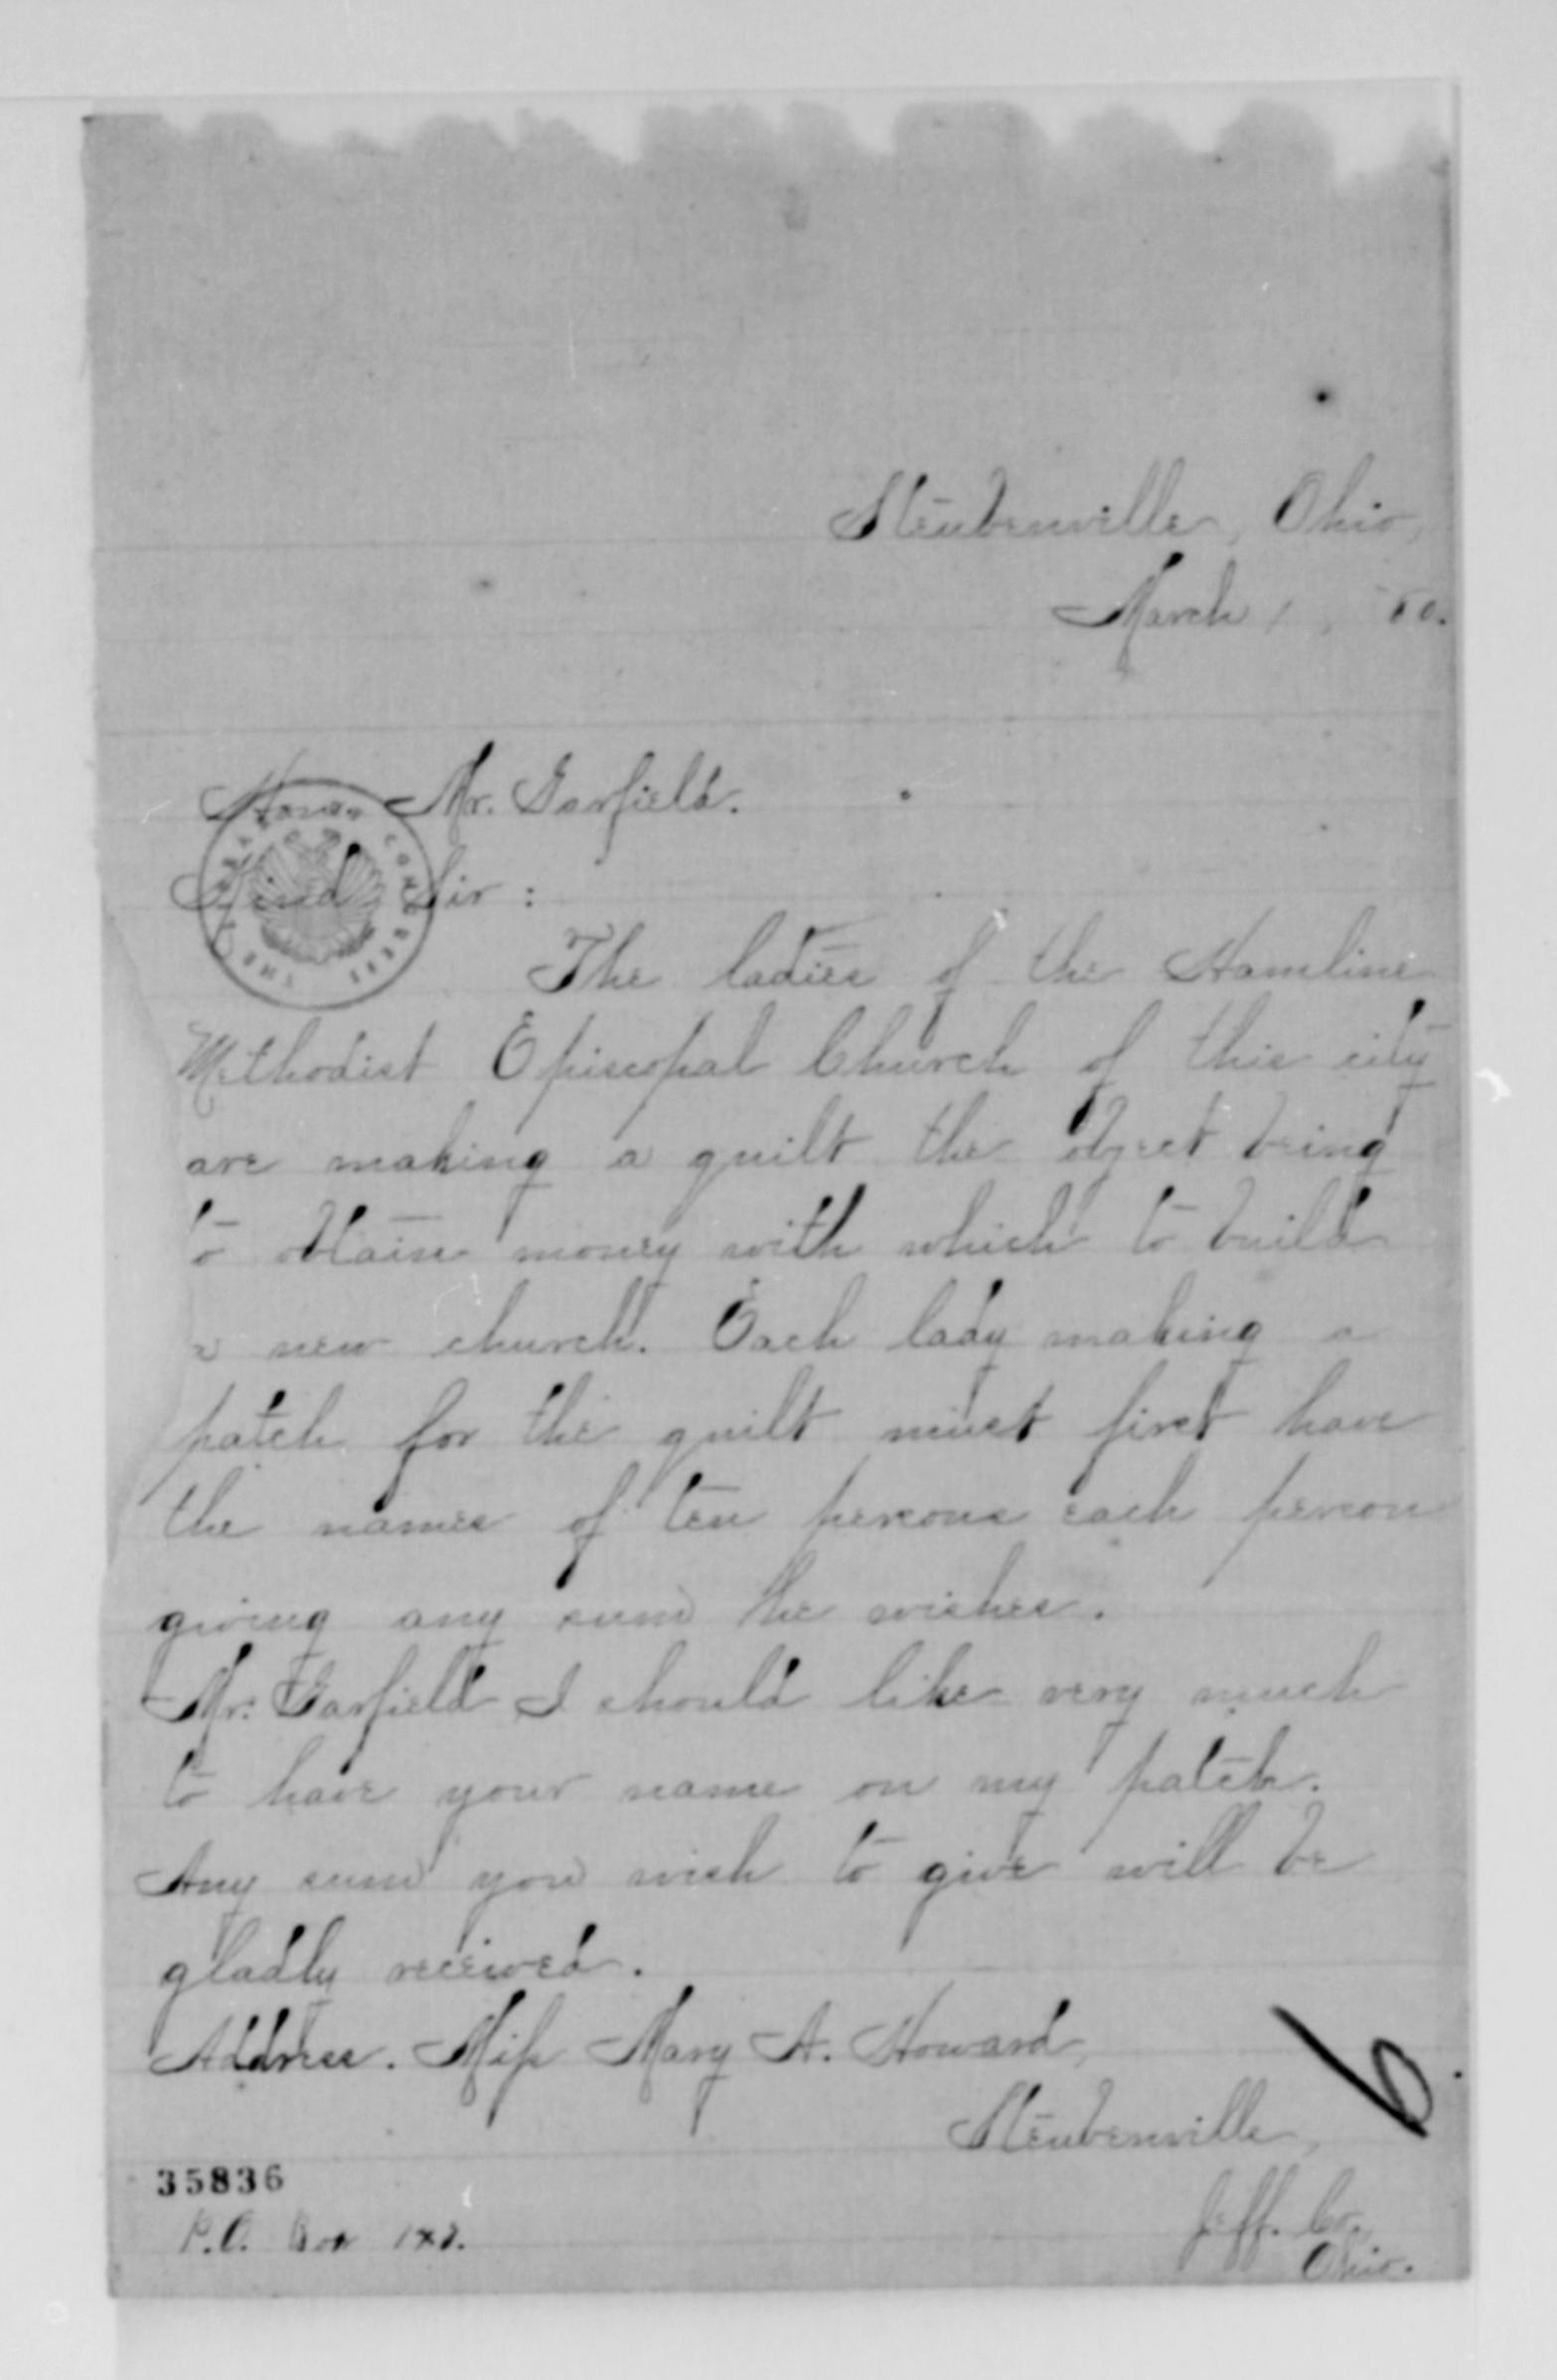 Steubenville, Ohio,
March 1, 80.
Hon. Mr. Garfield.
Kind Sir :
THE LIBRARY OF CONGRESS
The ladies of the Hamline
Methodist Episcopal Church of this city
are making a quilt the object being
to obtain money with which to build
a new church. Each lady making a
patch for the quilt must first have
the names of ten persons each person
giving any sum he wishes.
Mr. Garfield I should like very much
to have your name on my patch.
Any sum you wish to give will be
gladly received.
Address. Miss Mary A. Howard,
Steubenville,
6
35836
Jeff. Co.,
P.O. Box
Ohio.